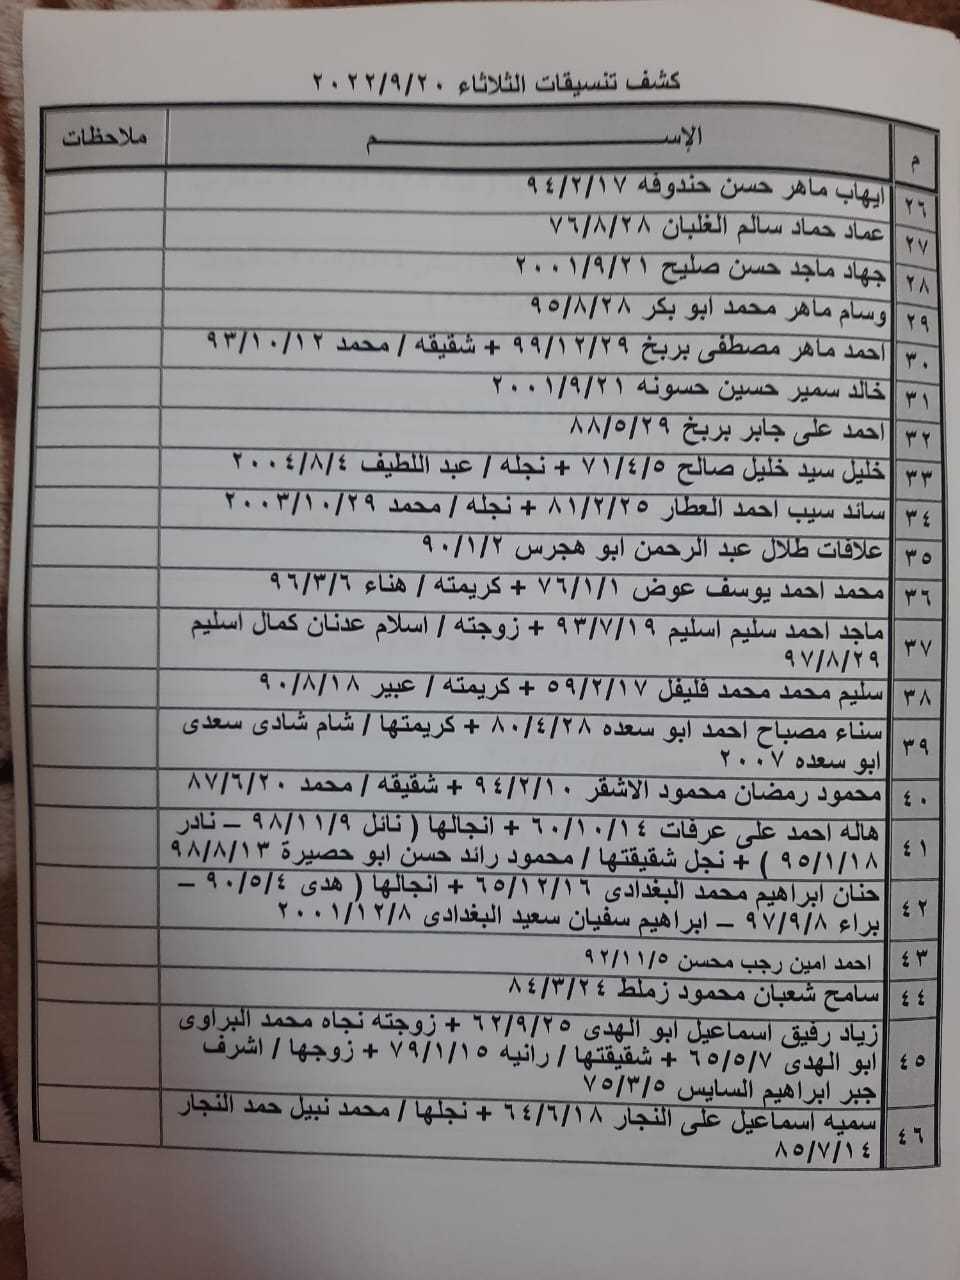 كشف تنسيقات الثلاثاء ٢٠٢٢/٩/٢٠
م الإســــــــــم ملاحظات
٢٦ ايهاب ماهر حسن حندوفه ٩٤/٢/١٧
٢٧ عماد حماد سالم الغلبان ٧٦/٨/٢٨
٢٨ جهاد ماجد حسن صليح ٢٠٠١/٩/٢١
٢٩ وسام ماهر محمد ابو بكر ٩٥/٨/٢٨
٣٠ احمد ماهر مصطفى بربخ ٩٩/١٢/٢٩ + شقيقه / محمد ٩٣/١٠/١٢
٣١ خالد سمير حسين حسونه ٢٠٠١/٩/٢١
٣٢ احمد على جابر بربخ ٨٨/٥/٢٩
٣٣ خليل سيد خليل صالح ٧١/٤/٥ + نجله / عبد اللطيف ٢٠٠٤/٨/٤
٣٤ سائد سيب احمد العطار ٨١/٢/٢٥ + نجله / محمد ٢٠٠٣/١٠/٢٩
٣٥ علافات طلال عبد الرحمن ابو هجرس ٩٠/١/٢
٣٦ محمد احمد يوسف عوض ٧٦/١/١ + كريمته / هناء ٩٦/٣/٦
٣٧ ماجد احمد سليم اسليم ٩٣/٧/١٩ + زوجته / اسلام عدنان كمال اسليم
٩٧/٨/٢٩
٣٨ سليم محمد محمد فليفل ٥٩/٢/١٧ + كريمته / عبير ٩٠/٨/١٨
٣٩ سناء مصباح احمد ابو سعده ٨٠/٤/٢٨ + كريمتها / شام شادى سعدى
ابو سعده ٢٠٠٧
٤٠ محمود رمضان محمود الاشقر ٩٤/٢/١٠ + شقيقه / محمد ٨٧/٦/٢٠
٤١ هاله احمد على عرفات ٦٠/١٠/١٤ + انجالها ( نائل ٩٨/١١/٩ – نادر
٩٥/١/١٨ ) + نجل شقيقتها / محمود رائد حسن ابو حصيرة ٩٨/٨/١٣
٤٢ حنان ابراهيم محمد البغدادى ٦٥/١٢/١٦ + انجالها ( هدى ٩٠/٥/٤ –
براء ٩٧/٩/٨ – ابراهيم سفيان سعيد البغدادى ٢٠٠١/١٢/٨
٤٣ احمد امين رجب محسن ٩٢/١١/٥
٤٤ سامح شعبان محمود زملط ٨٤/٣/٢٤
٤٥ زياد رفيق اسماعيل ابو الهدى ٦٢/٩/٢٥ + زوجته نجاه محمد البراوى
ابو الهدى ٦٥/٥/٧ + شقيقتها / رانيه ٧٩/١/١٥ + زوجها / اشرف
جبر ابراهيم السايس ٧٥/٣/٥
٤٦ سميه اسماعيل على النجار ٦٤/٦/١٨ + نجلها / محمد نبيل حمد النجار
٨٥/٧/١٤